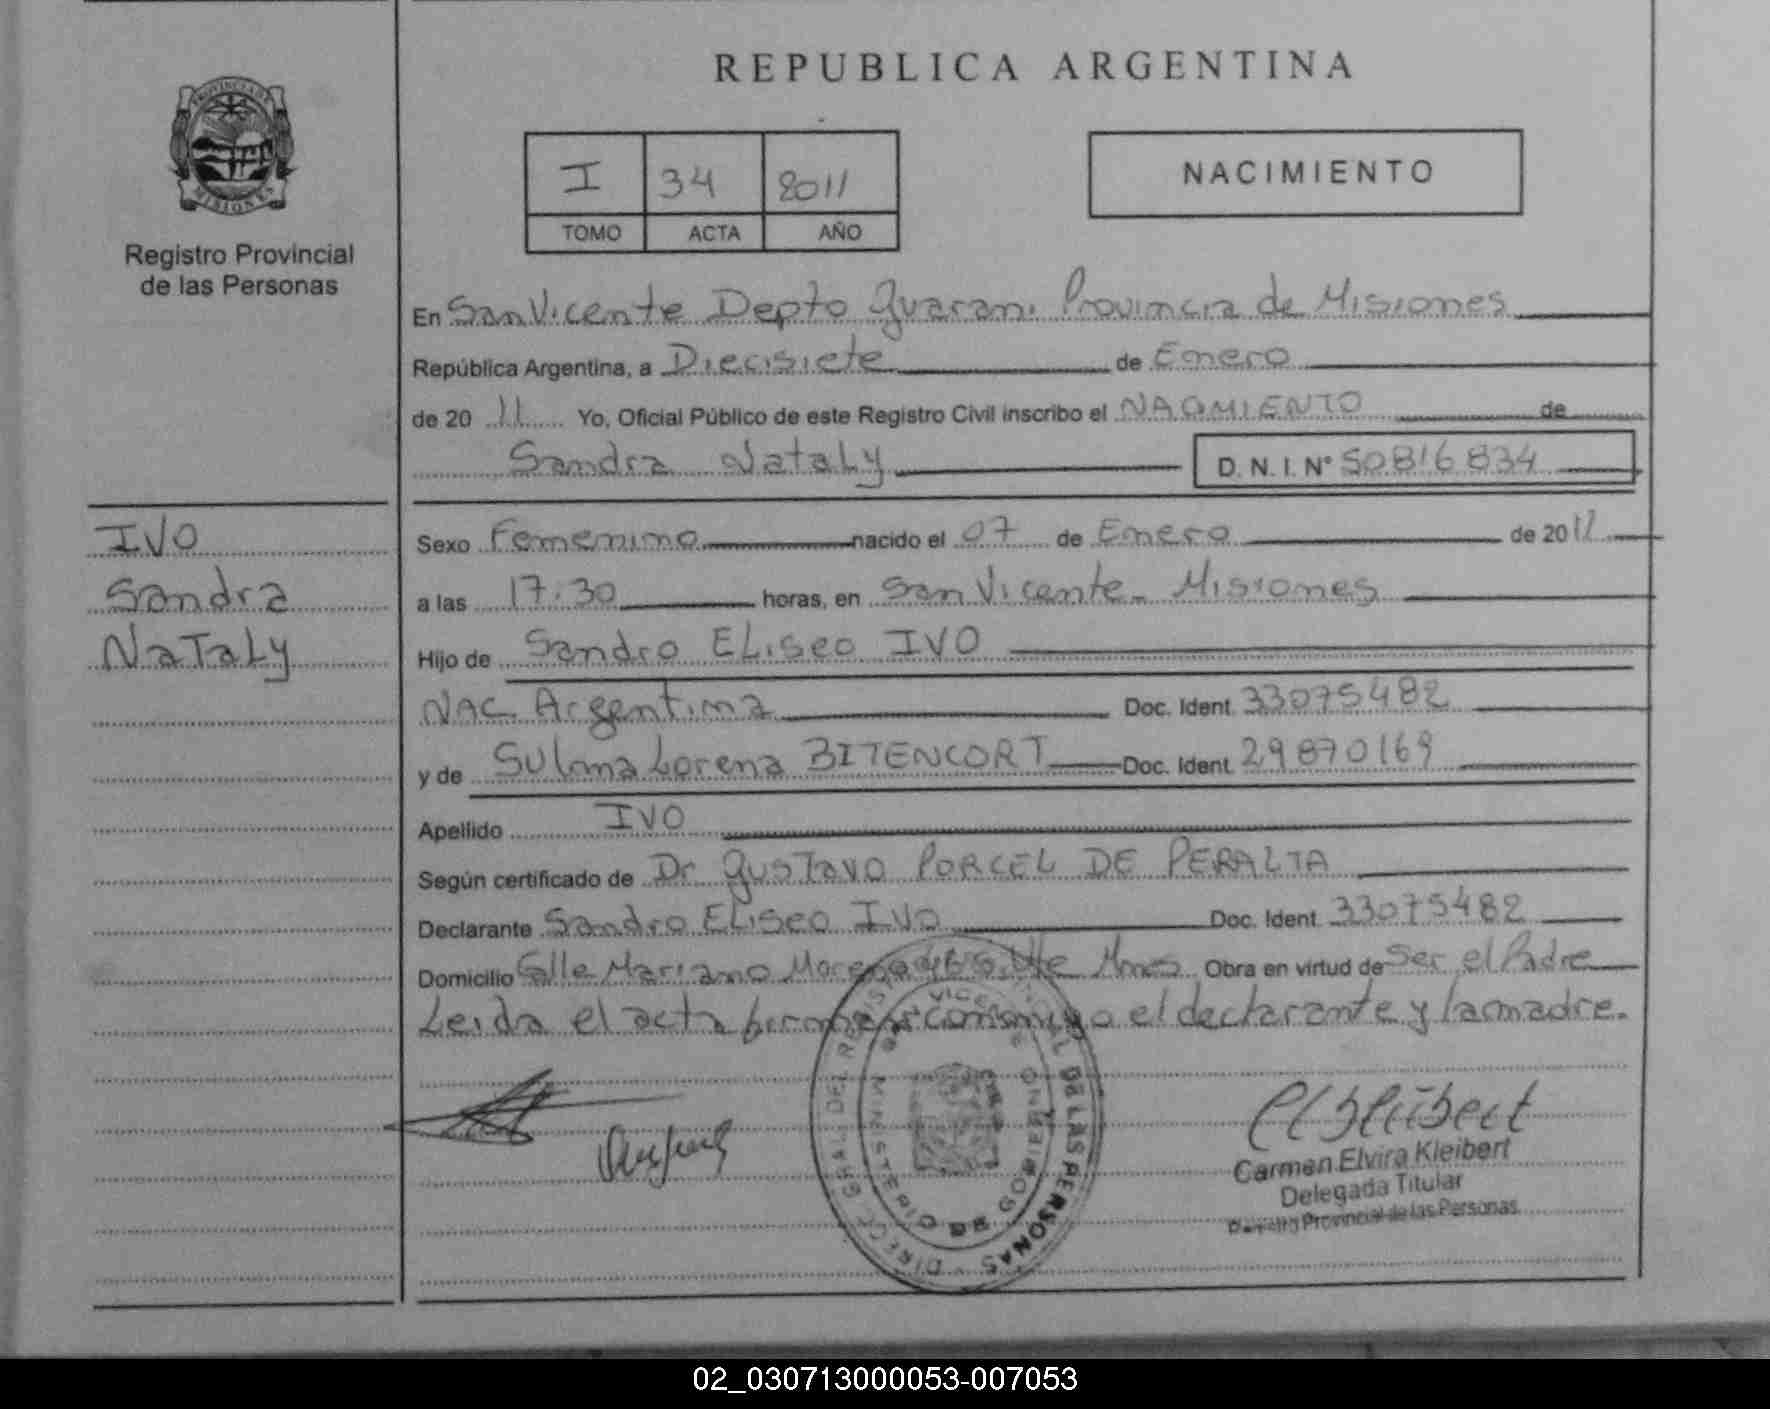 REPUBLICA ARGENTINA
PROVINCIA DE
MISIONES
Registro Provincial
de las Personas
I 34 2011
TOMO ACTA AÑO
NACIMIENTO
En San Vicente Depto Guarani Provincia de Misiones
República Argentina, a Diecisiete de Enero
de 20 11 Yo, Oficial Público de este Registro Civil inscribo el NACIMIENTO de
Sandra Nataly D. N. I. N° 50816834
IVO
Sandra
Nataly
Sexo Femenino nacido el 07 de Enero de 2011
a las 17:30 horas, en San Vicente - Misiones
Hijo de Sandro Eliseo IVO
Nac. Argentina Doc. Ident. 33075482
y de Sulma Lorena BITENCORT Doc. Ident. 29870169
Apellido IVO
Según certificado de Dr Gustavo PORCEL DE PERALTA
Declarante Sandro Eliseo IVO Doc. Ident. 33075482
Domicilio Calle Mariano Moreno Mnes Obra en virtud de Ser el Padre
Leida el acta firman conmigo el declarante y la madre.
DIREC. GRAL. DEL REGIST DE LAS PERSONAS
MINISTERIO DE GOBIERNO
VICENTE
Carmen Elvira Kleibert
Delegada Titular
Registro Provincial de las Personas
02_030713000053-007053